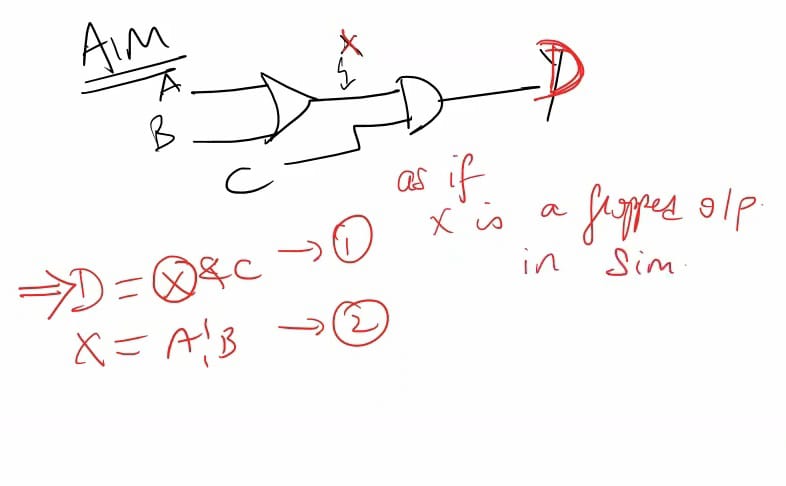 AIM
X
A
B
C
D
as if
X is a flopped o/p.
in Sim.
⇒ D = X & C → 1
X = A | B → 2